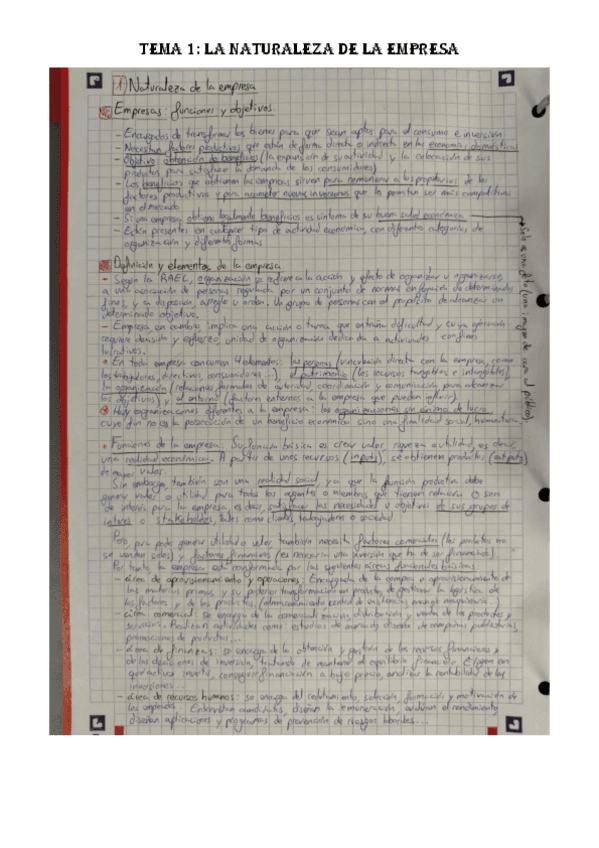 TEMA 1: LA NATURALEZA DE LA EMPRESA
1) Naturaleza de la empresa
Empresas: funciones y objetivos
- Encargadas de transformar los bienes para que sean aptos para el consumo e inversión
- Necesitan factores productivos que están de forma directa o indirecta en las economías domésticas
- Objetivo: obtención de beneficios (la expansión de su actividad y la colocación de sus
productos para satisfacer la demanda de los consumidores)
- Los beneficios que obtienen las empresas sirven para remunerar a los propietarios de los
factores productivos y para acometer nuevas inversiones que le permitan ser más competitivas
en el mercado
- Si una empresa obtiene legalmente beneficios es síntoma de su buena salud económica
- Están presentes en cualquier tipo de actividad económica, con diferentes categorías de
organización y diferentes formas
Definición y elementos de la empresa
- Según la RAEL, organización se refiere a la acción y efecto de organizar u organizarse,
a una asociación de personas regulada por un conjunto de normas en función de determinados
fines, y a disposición, arreglo u orden. Un grupo de personas con el propósito de alcanzar un
determinado objetivo.
- Empresa en cambio, implica una acción o tarea que entraña dificultad y cuya ejecución
requiere decisión y esfuerzo, unidad de organización dedicada a actividades con fines
lucrativos.
• En toda empresa concurren 4 elementos: las personas (vinculación directa con la empresa, como
los trabajadores, directivos, consumidores...), el patrimonio (los recursos tangibles e intangibles),
la organización (relaciones formales de autoridad, coordinación y comunicación para alcanzar
los objetivos) y el entorno (factores externos a la empresa que pueden influir).
Hay organizaciones diferentes a la empresa: las organizaciones sin ánimo de lucro,
cuyo fin no es la persecución de un beneficio económico sino una finalidad social, humanitaria
• Funciones de la empresa: Su función básica es crear valor, riqueza o utilidad, es decir,
una realidad económica. A partir de unos recursos (inputs), se obtienen productos (outputs)
de mayor valor.
Sin embargo también son una realidad social, ya que la función productiva debe
generar valor o utilidad para todos los agentes o miembros que tienen relación o son
de interés para la empresa, es decir, satisfacer las necesidades u objetivos de sus grupos de
interés o stakeholders, tales como clientes, trabajadores o sociedad
Pero para poder generar utilidad o valor también necesita factores comerciales (los productos no
se venden solos) y factores financieros (es necesaria una inversión que ha de ser financiada)
Por tanto, la empresa está conformada por las siguientes áreas funcionales básicas:
- área de aprovisionamiento y operaciones: Encargada de la compra o aprovisionamiento de
las materias primas y su posterior transformación en producto, de gestionar la logística de
los factores y de los productos (almacenamiento, control de existencias, manejo maquinaria)
- área comercial: se encarga de la comunicación, distribución y venta de los productos y
servicios. Realizan actividades como: estudios de mercado, diseño de campañas publicitarias,
promociones de productos...
- área de finanzas: se encarga de la obtención y gestoría de los recursos financieros y
de las decisiones de inversión, tratando de mantener el equilibrio financiero. Eligen en
qué activos invertir, conseguir financiación a bajo precio, analizar la rentabilidad de las
inversiones
- área de recursos humanos: se encarga del reclutamiento, selección, formación y motivación de
los empleados. Entrevistan candidatos, diseñan la remuneración, evalúan el rendimiento
diseñan aplicaciones y programas de prevención de riesgos laborales...